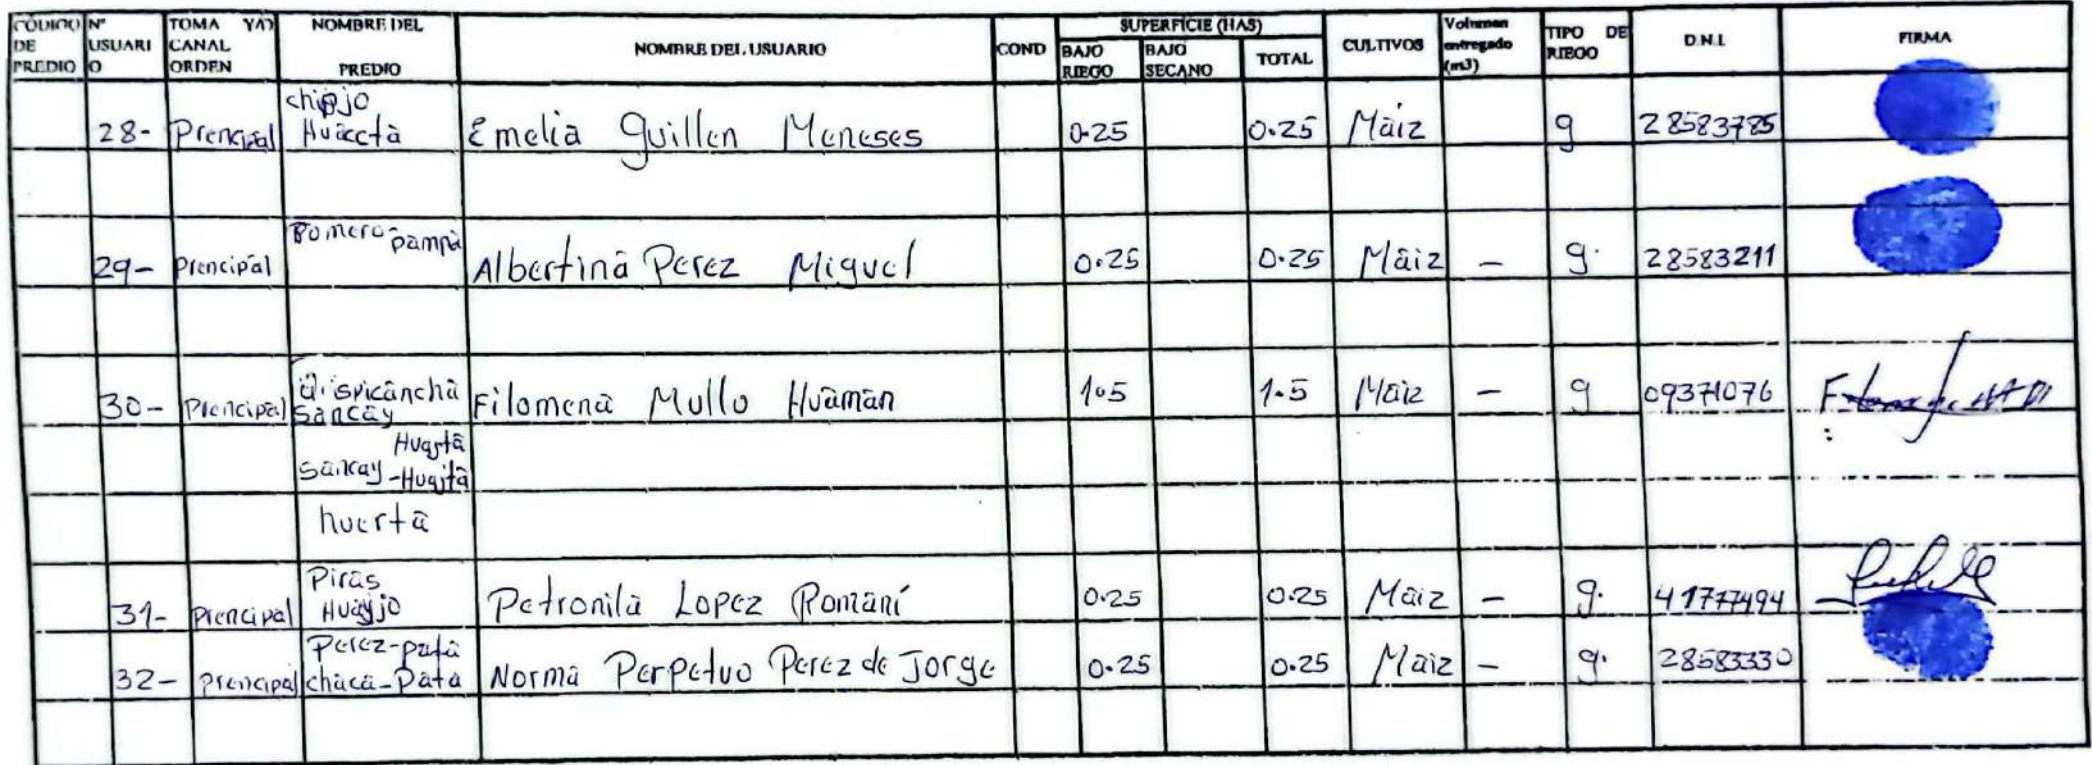 CODIGO DE PREDIO N° USUARIO TOMA Y/O CANAL ORDEN NOMBRE DEL PREDIO NOMBRE DEL USUARIO COND SUPERFICIE (HAS) BAJO RIEGO BAJO SECANO TOTAL CULTIVOS Volumen entregado (m3) TIPO DE RIEGO D.N.I. FIRMA
28- Prencipal Huaccta Emelia Guillen Meneses 0.25 0.25 Maiz g 28583785
Pomero-pampa
29- Prencipal Albertina Perez Miguel 0.25 0.25 Maiz - g. 28583211
30- Prencipal Sancay Filomena Mullo Huaman 1.5 1.5 Maiz - g 09371076
Sancay
huerta
Piras
31- Prencipal Huayjo Petronila Lopez Romaní 0.25 0.25 Maiz - g. 41777494
Perez-pata
32- Prencipal chaca-Pata Norma Perpetuo Perez de Jorge 0.25 0.25 Maiz - g. 28583330